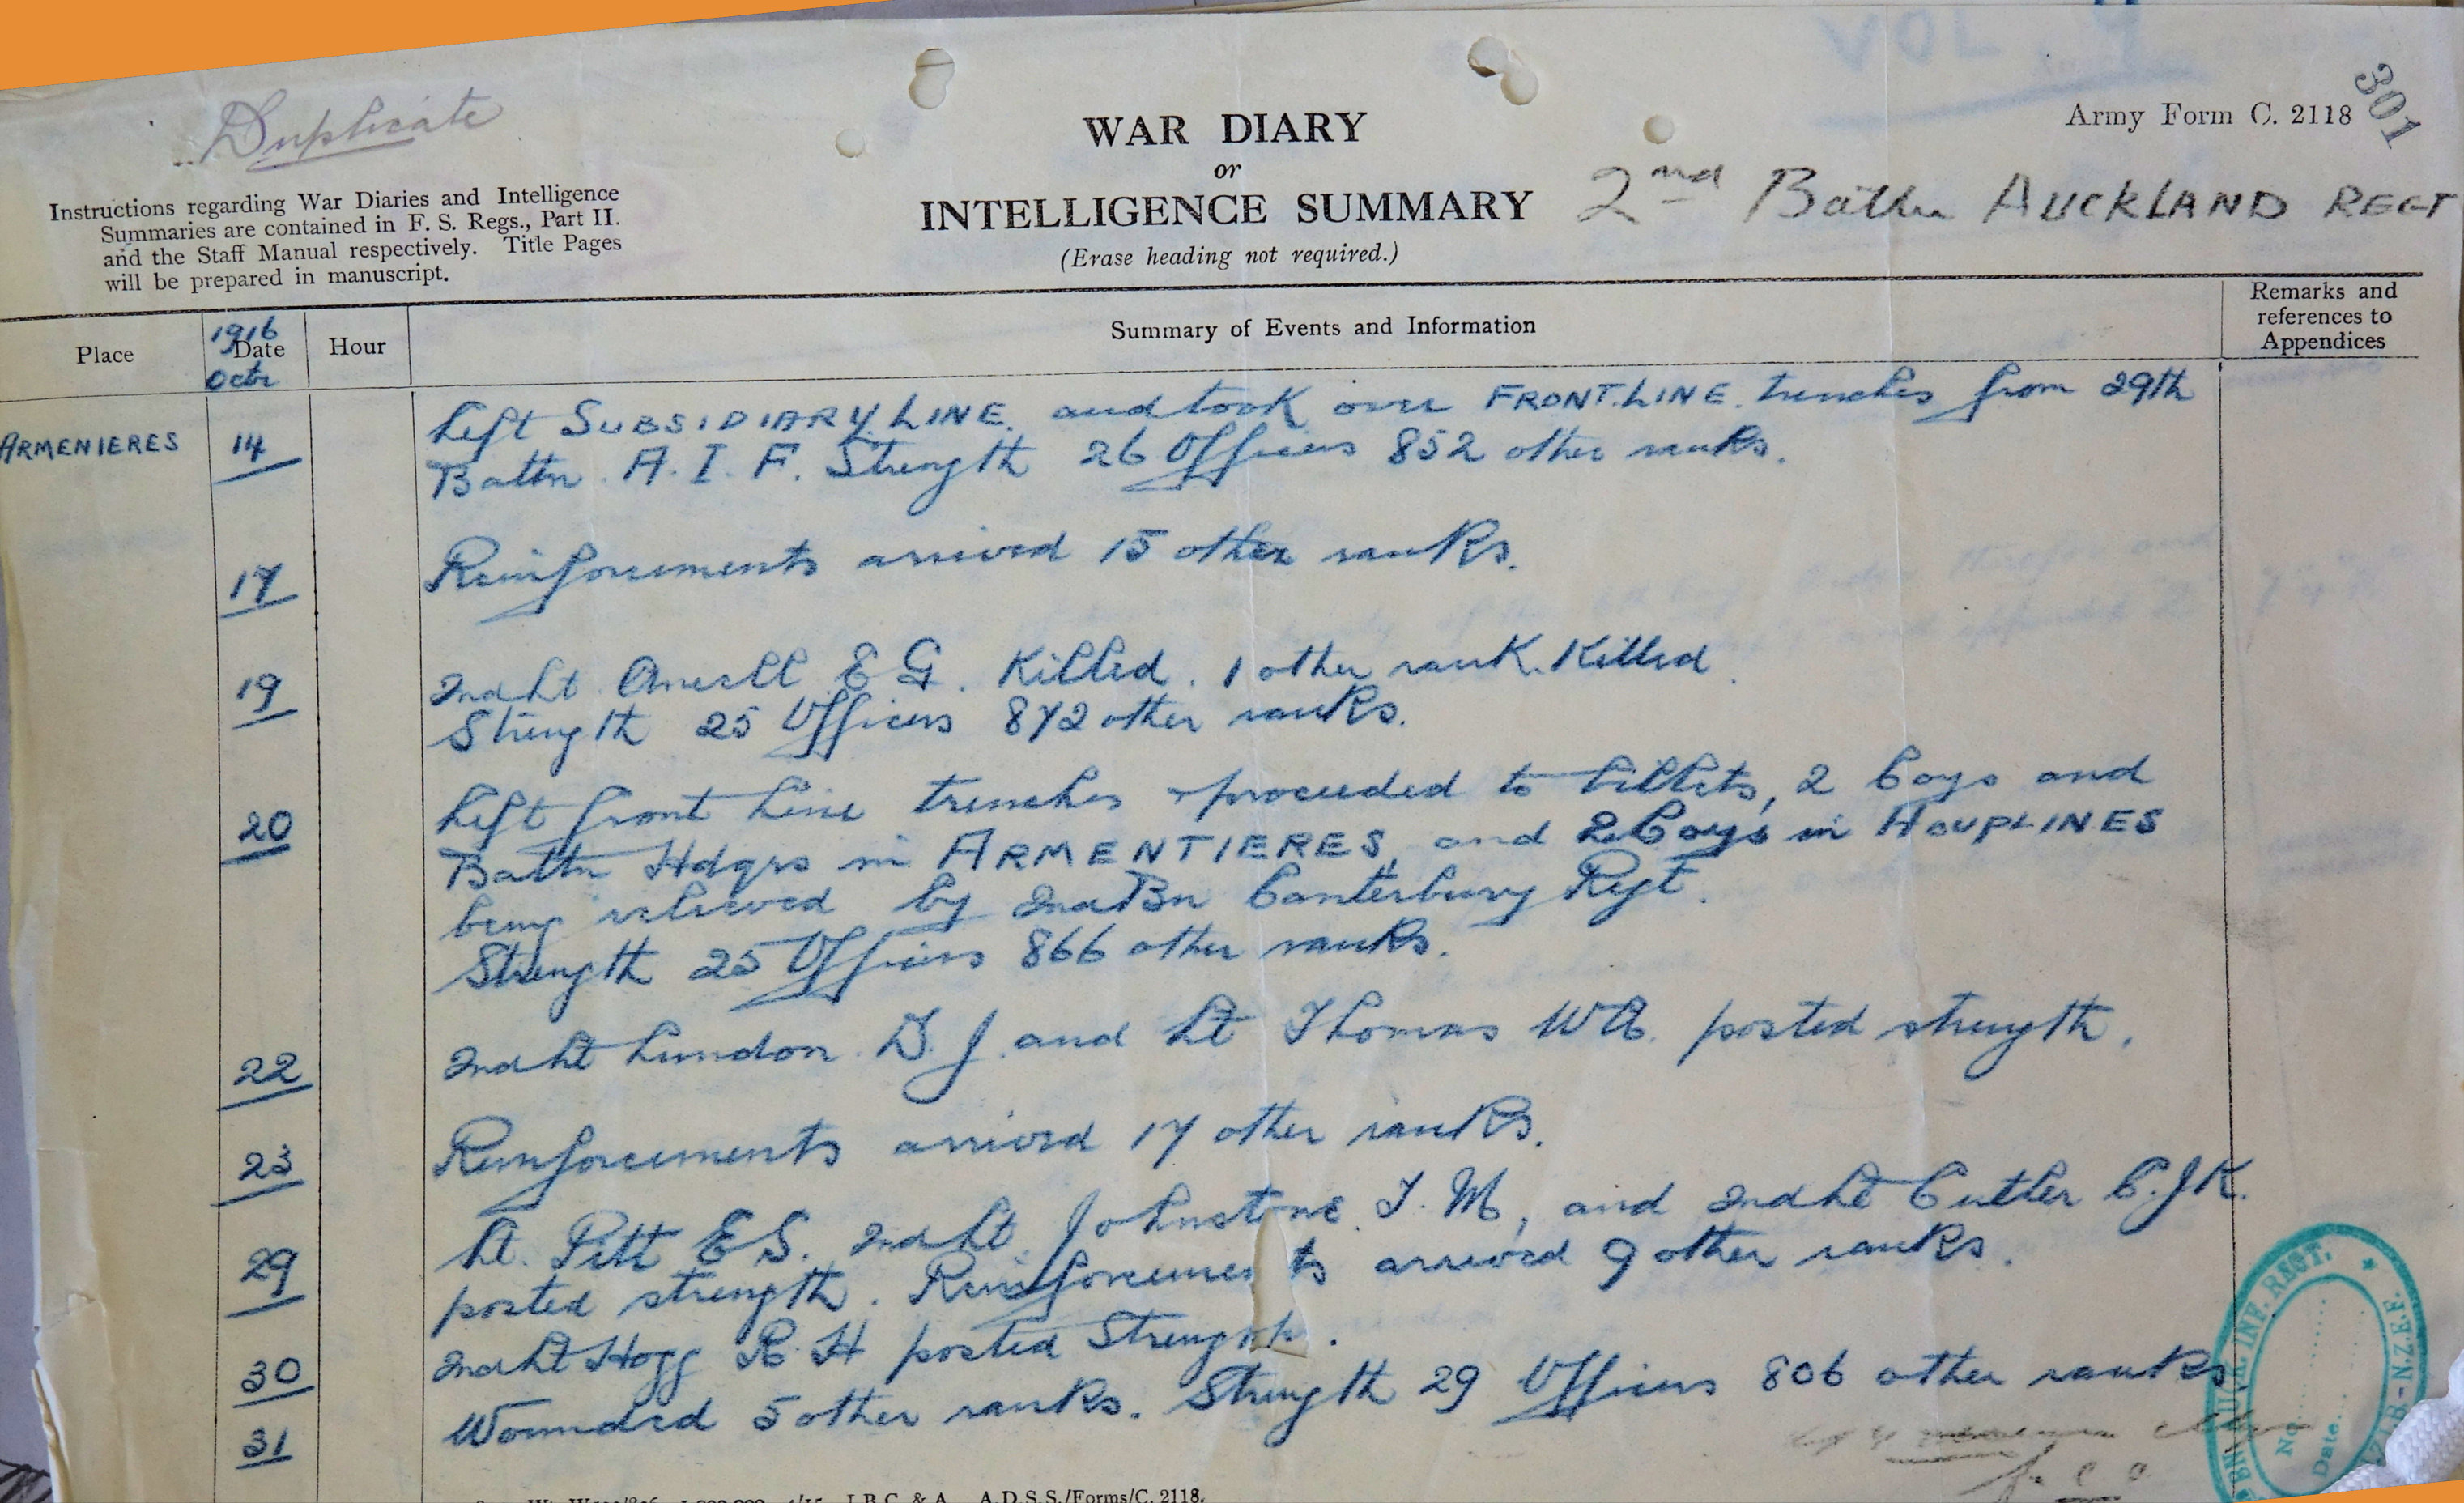 Duplicate
Army Form C. 2118
301
WAR DIARY
or
INTELLIGENCE SUMMARY
(Erase heading not required.)
2nd Battn AUCKLAND REGT
Instructions regarding War Diaries and Intelligence
Summaries are contained in F. S. Regs., Part II.
and the Staff Manual respectively. Title Pages
will be prepared in manuscript.
Place
1916
Date
Octr
Hour
Summary of Events and Information
Remarks and
references to
Appendices
ARMENIERES 14 Left SUBSIDIARY LINE. and took over FRONT.LINE. trenches from 29th
Battn. A. I. F. Strength 26 Officers 852 other ranks.
17 Reinforcements arrived 15 other ranks.
19 2nd Lt E G. Killed. 1 other rank. Killed.
Strength 25 Officers 872 other ranks.
20 Left front line trenches & proceeded to billets, 2 Coys and
Battn Hdqrs in ARMENTIERES, and 2 Coys in HOUPLINES
being relieved by 2nd Bn Canterbury Regt.
Strength 25 Officers 866 other ranks.
22 2nd Lt Lundon. D. J. and Lt Thomas W A. posted strength.
23 Reinforcements arrived 17 other ranks.
29 Lt. Pitt E S. 2nd Lt. Johnstone. T. M, and 2nd Lt Cutler C. J K.
posted strength. Reinforcements arrived 9 other ranks.
30 2nd Lt Hogg R. H posted Strength.
31 Wounded 5 other ranks. Strength 29 Officers 806 other ranks
INF. REGT.
N.Z.E.F.
No.
Date
A.D.S.S./Forms/C. 2118.